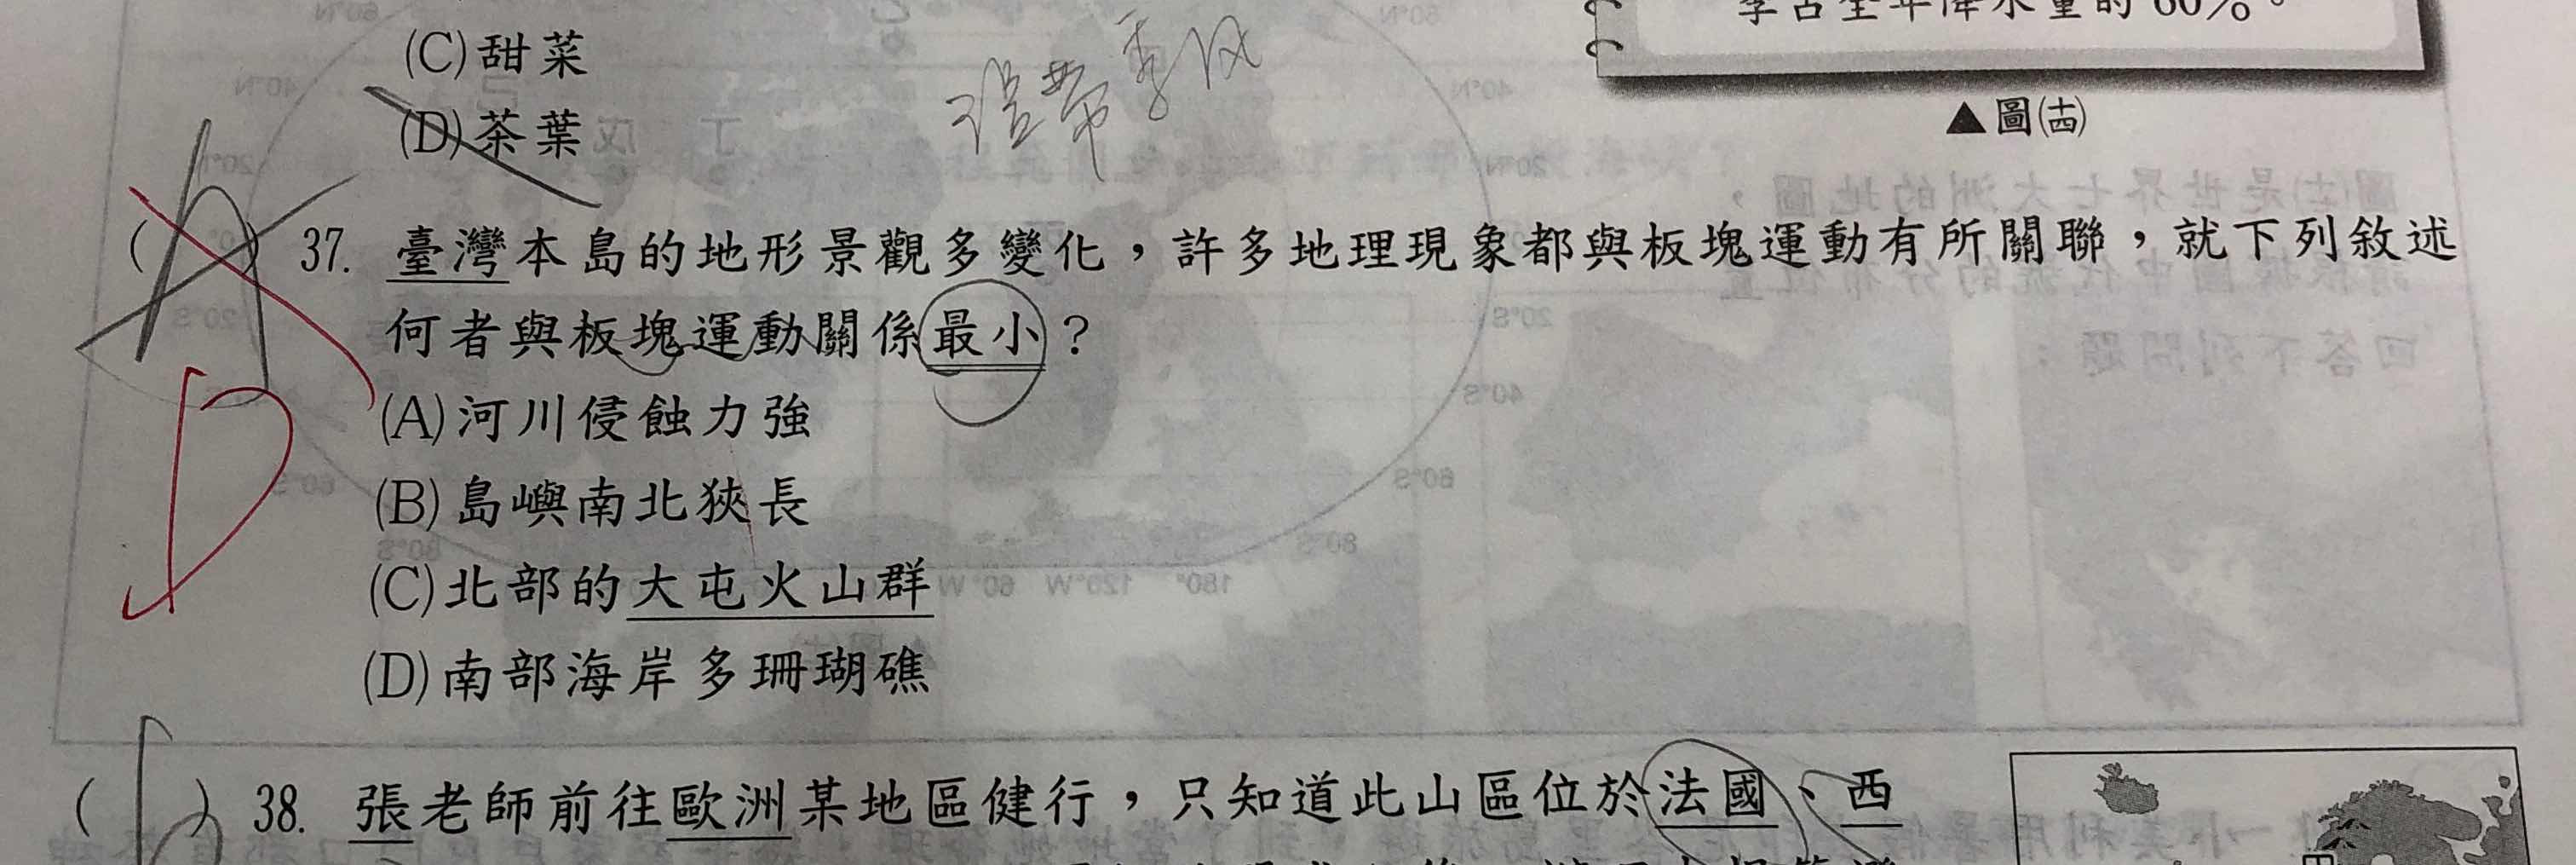 季占全年降水量的60%。
(C)甜菜
(D)茶葉
▲圖(十四)
A
D
( ) 37. 臺灣本島的地形景觀多變化，許多地理現象都與板塊運動有所關聯，就下列敘述
何者與板塊運動關係最小？
(A)河川侵蝕力強
(B)島嶼南北狹長
(C)北部的大屯火山群
(D)南部海岸多珊瑚礁
( ) 38. 張老師前往歐洲某地區健行，只知道此山區位於法國、西